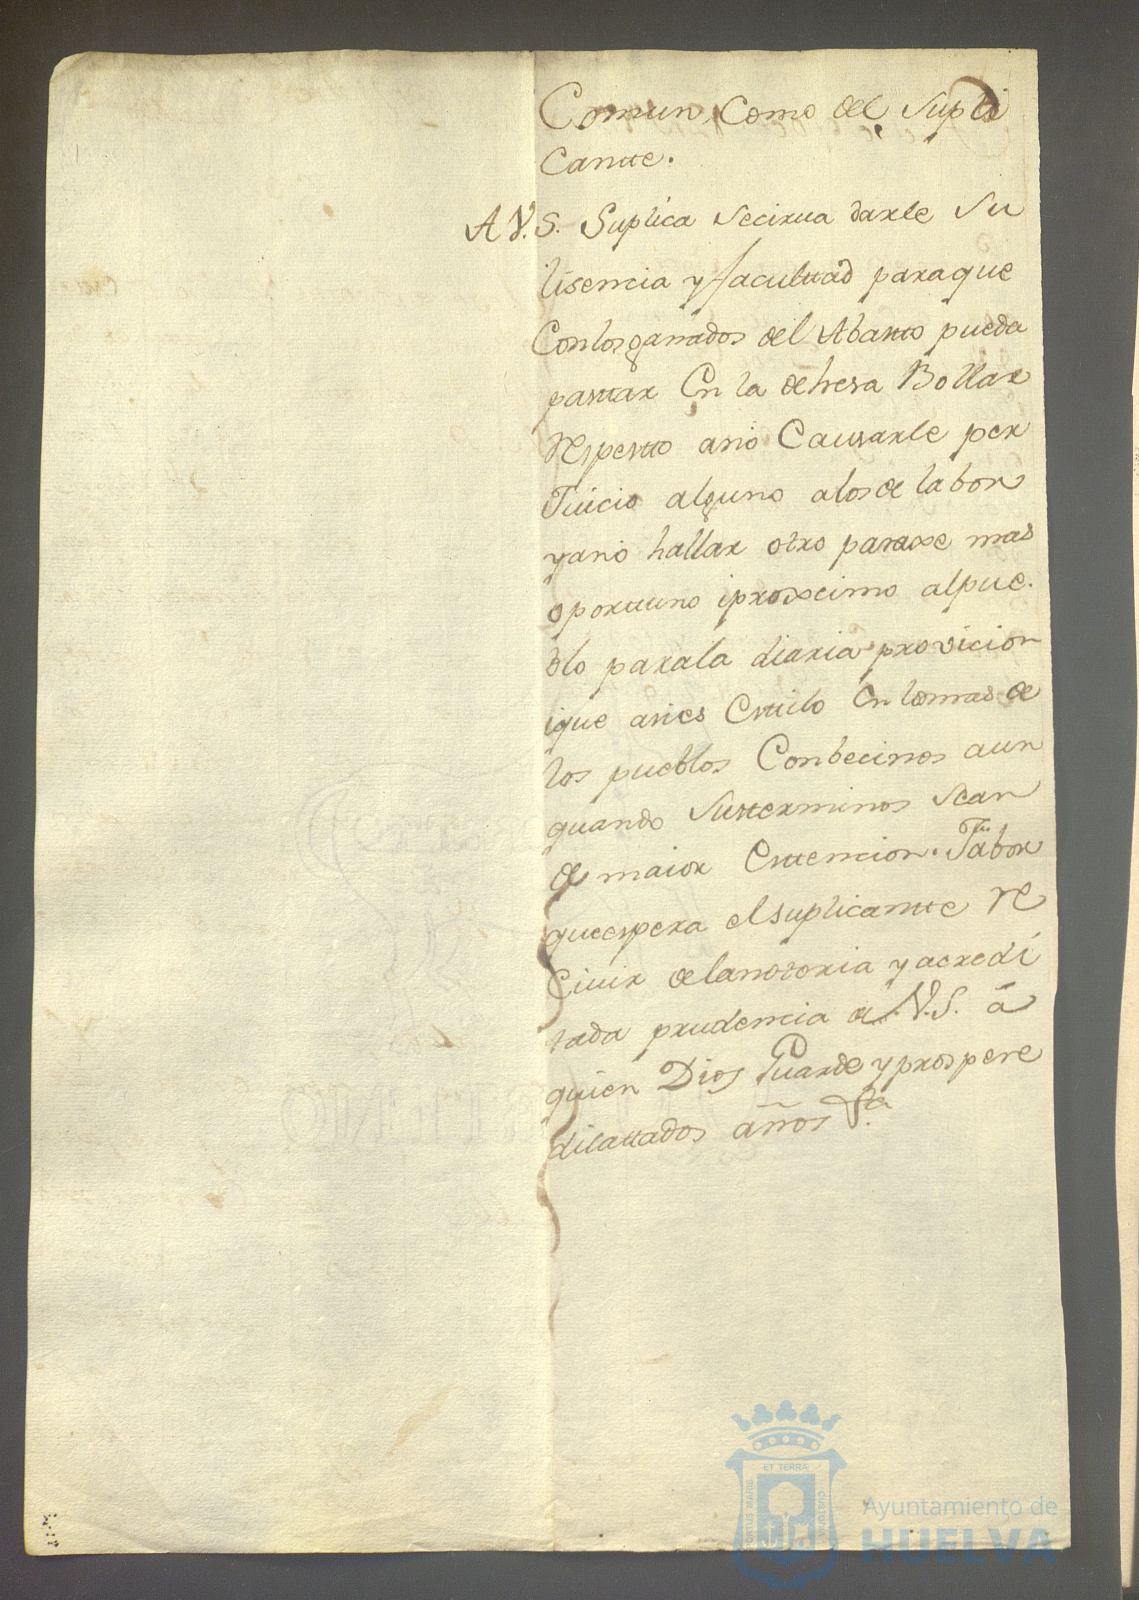 Comun, como del Supli
Cantte.
A V.S. Suplica se cirva darle su
lisencia y facultad para que
Con los ganados del Abasto pueda
pastar En la dehesa Bollar
Respectto ano Causarle per
Juicio alguno alos de labor
yano hallar otro paraxe mas
oportuno iproxcimo alpue.
blo parala diaria provicion
ique asies Esttilo En losmas de
los pueblos Conbecinos aun
quando Susterminos Sean
de maior Esttencion. Fabor
queespera elsuplicantte Re
Civir delanotoria y acredi
tada prudencia de V.S. á
quien Dios Guarde y prospere
dilattados años
ET TERRA
PORTUS MARIS
CUSTODIA
Ayuntamiento de
HUELVA